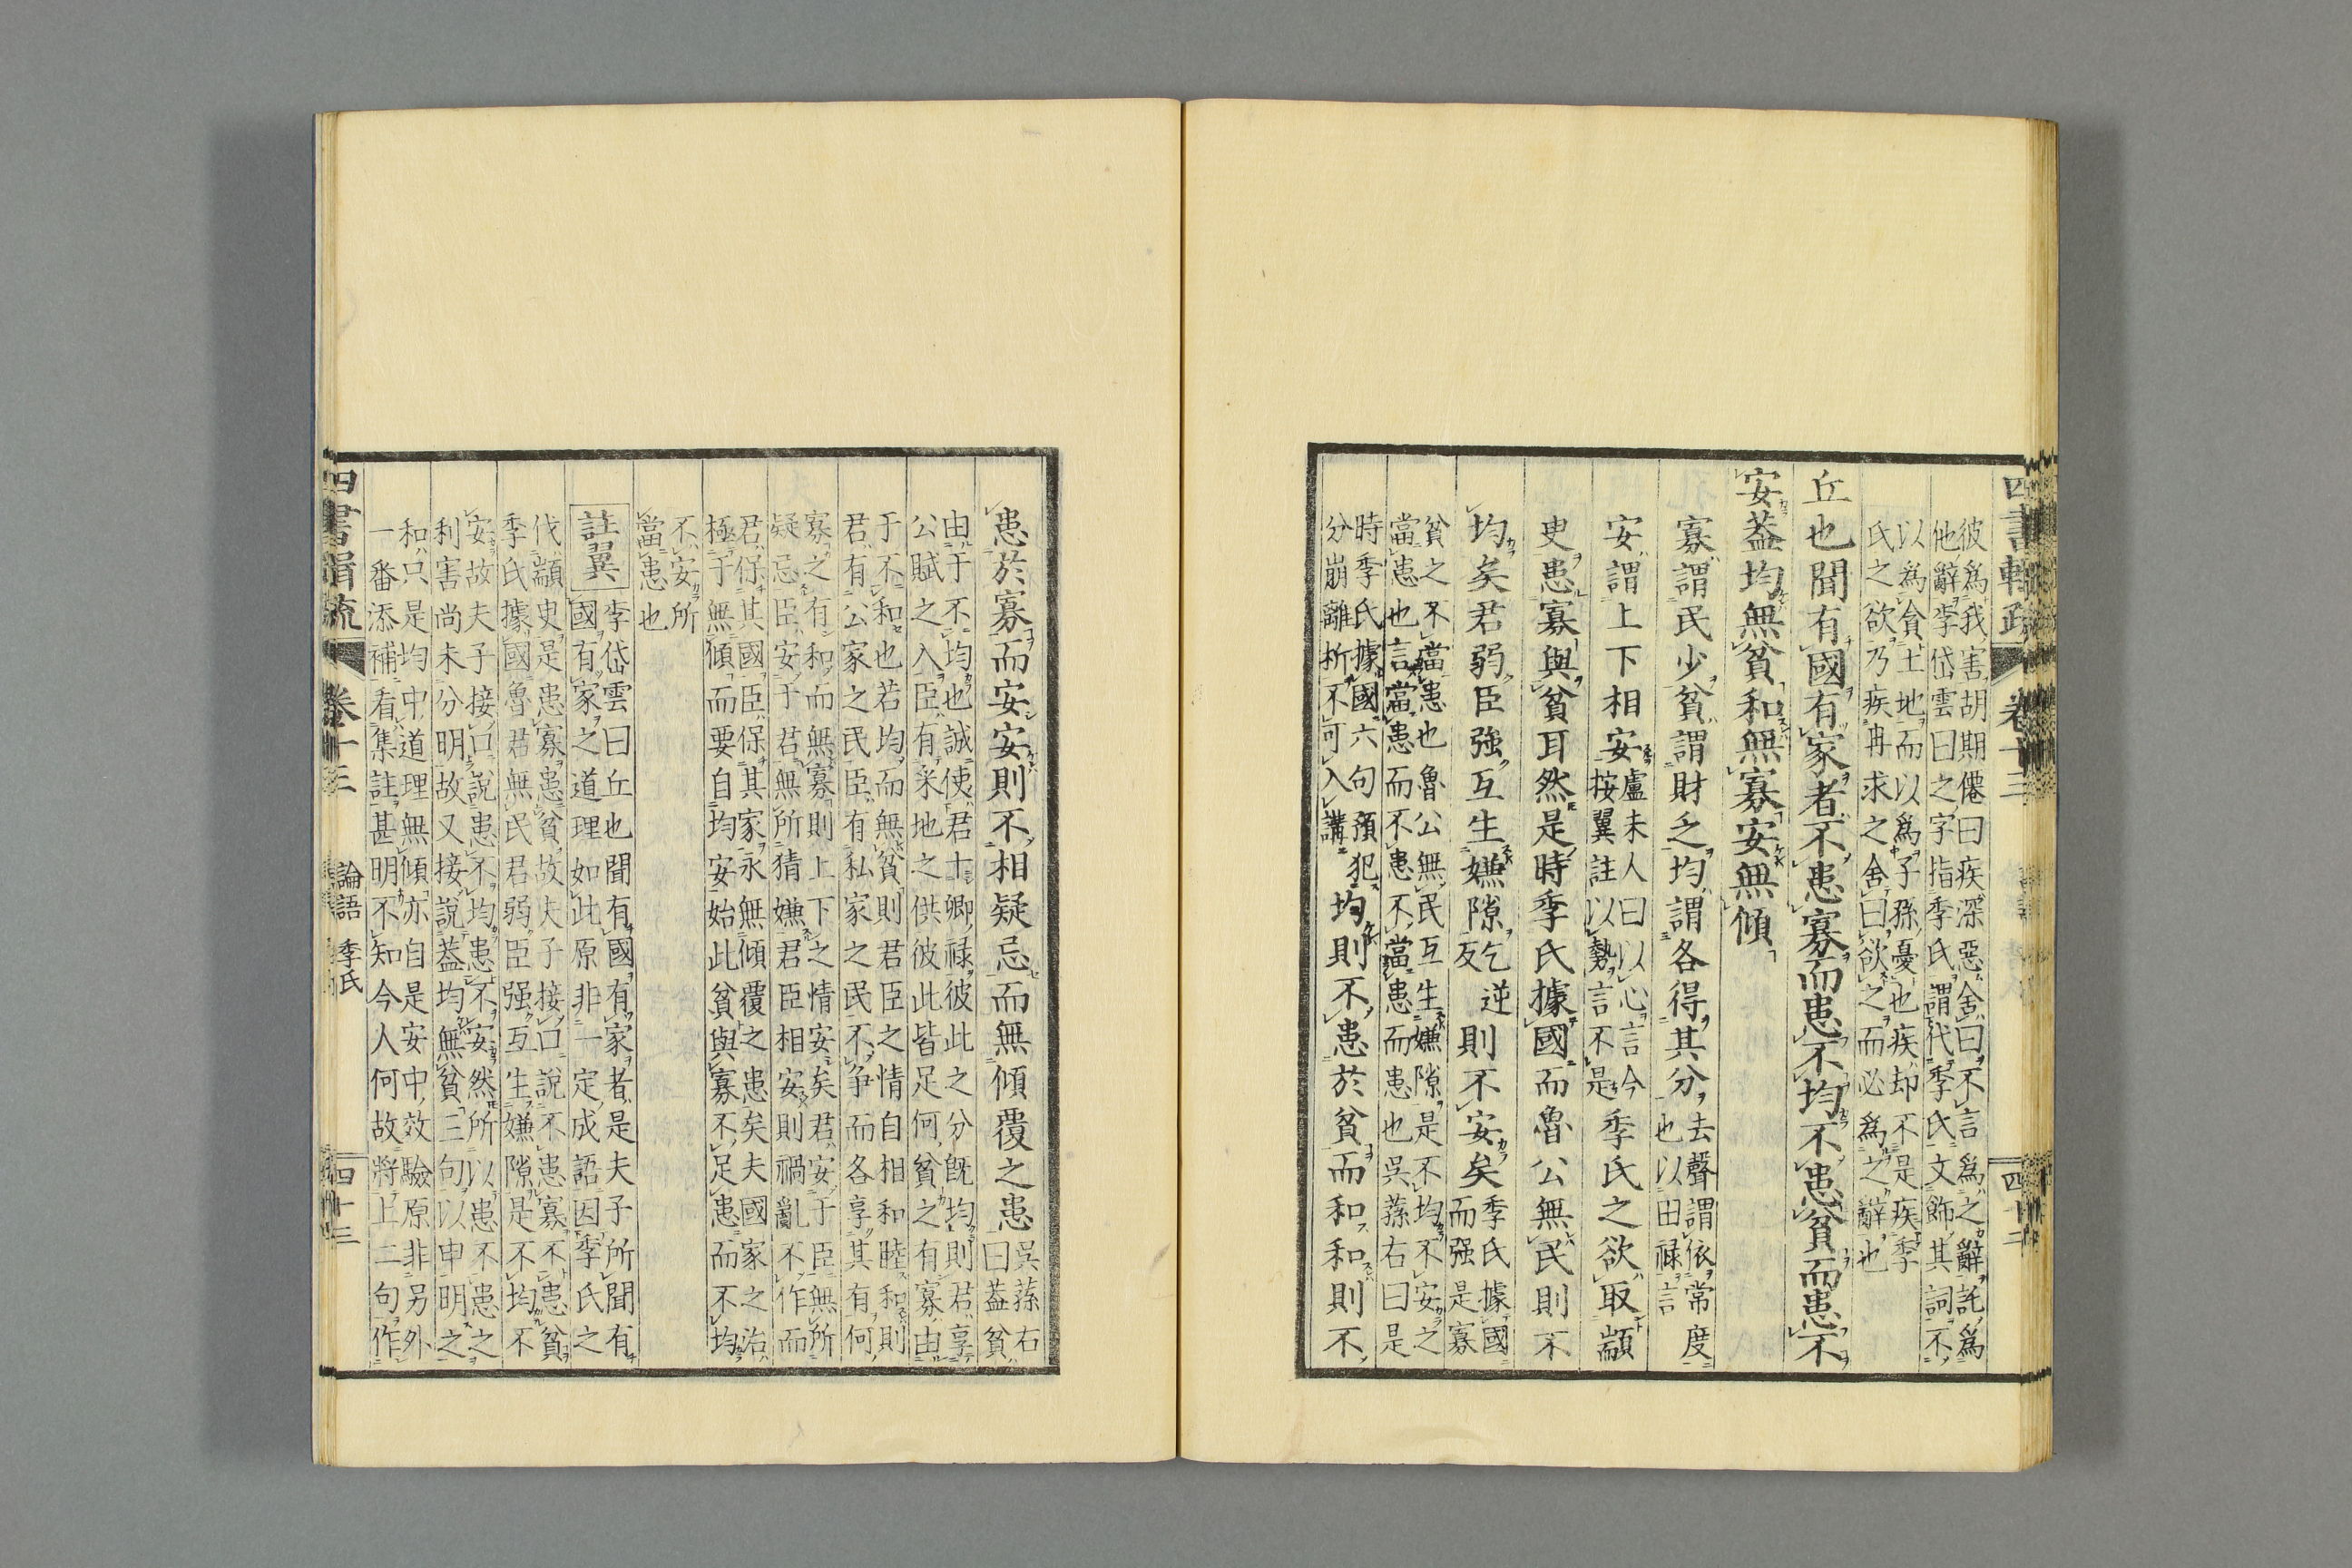 彼爲我害胡期僊曰疾深惡舍曰不言爲之辭託爲
他辭李岱雲曰之字指季氏謂代季氏文飾其詞不
以爲貪土地而以爲子孫憂也疾却不是疾季
氏之欲乃疾冉求之舍曰欲之而必爲之辭也
丘也聞有國有家者不患寡而患不均不患貧而患不
安葢均無貧和無寡安無傾
寡謂民少貧謂財乏均謂各得其分去聲謂依常度
也以田祿言
安謂上下相安盧未人曰以心言今
按翼註以勢言不是季氏之欲取顓
臾患寡與貧耳然是時季氏據國而魯公無民則不
均矣君弱臣強互生嫌隙乞逆
反則不安矣季氏據國
而强是寡
貧之不當患也魯公無民互生嫌隙是不均不安之
當患也言當患而不患不當患而患也吳蓀右曰是
時季氏據國六句預犯
分崩離析不可入講均則不患於貧而和和則不
患於寡而安安則不相疑忌而無傾覆之患吳蓀右
曰葢貧
由于不均也誠使君十卿祿彼此之分旣均則君享
公賦之入臣有采地之供彼此皆足何貧之有寡由
于不和也若均而無貧則君臣之情自相和睦和則
君有公家之民臣有私家之民不爭而各享其有何
寡之有和而無寡則上下之情安矣君安于臣無所
疑忌臣安于君無所猜嫌君臣相安則禍亂不作而
君保其國臣保其家永無傾覆之患矣夫國家之治
極于無傾而要自均安始此貧與寡不足患而不均
不安所
當患也
註翼
李岱雲曰丘也聞有國有家者是夫子所聞有
國有家之道理如此原非一定成語因季氏之
伐顓臾是患寡患貧故夫子接口說不患寡不患貧
季氏據國魯君無民君弱臣强互生嫌隙是不均不
安故夫子接口說患不均患不安然所以患不患之
利害尚未分明故又接說葢均無貧三句以申明之
和只是均中道理無傾亦自是安中效驗原非另外
一番添補看集註甚明不知今人何故將上二句作
四書輯疏 卷十三 論語 季氏 四十三